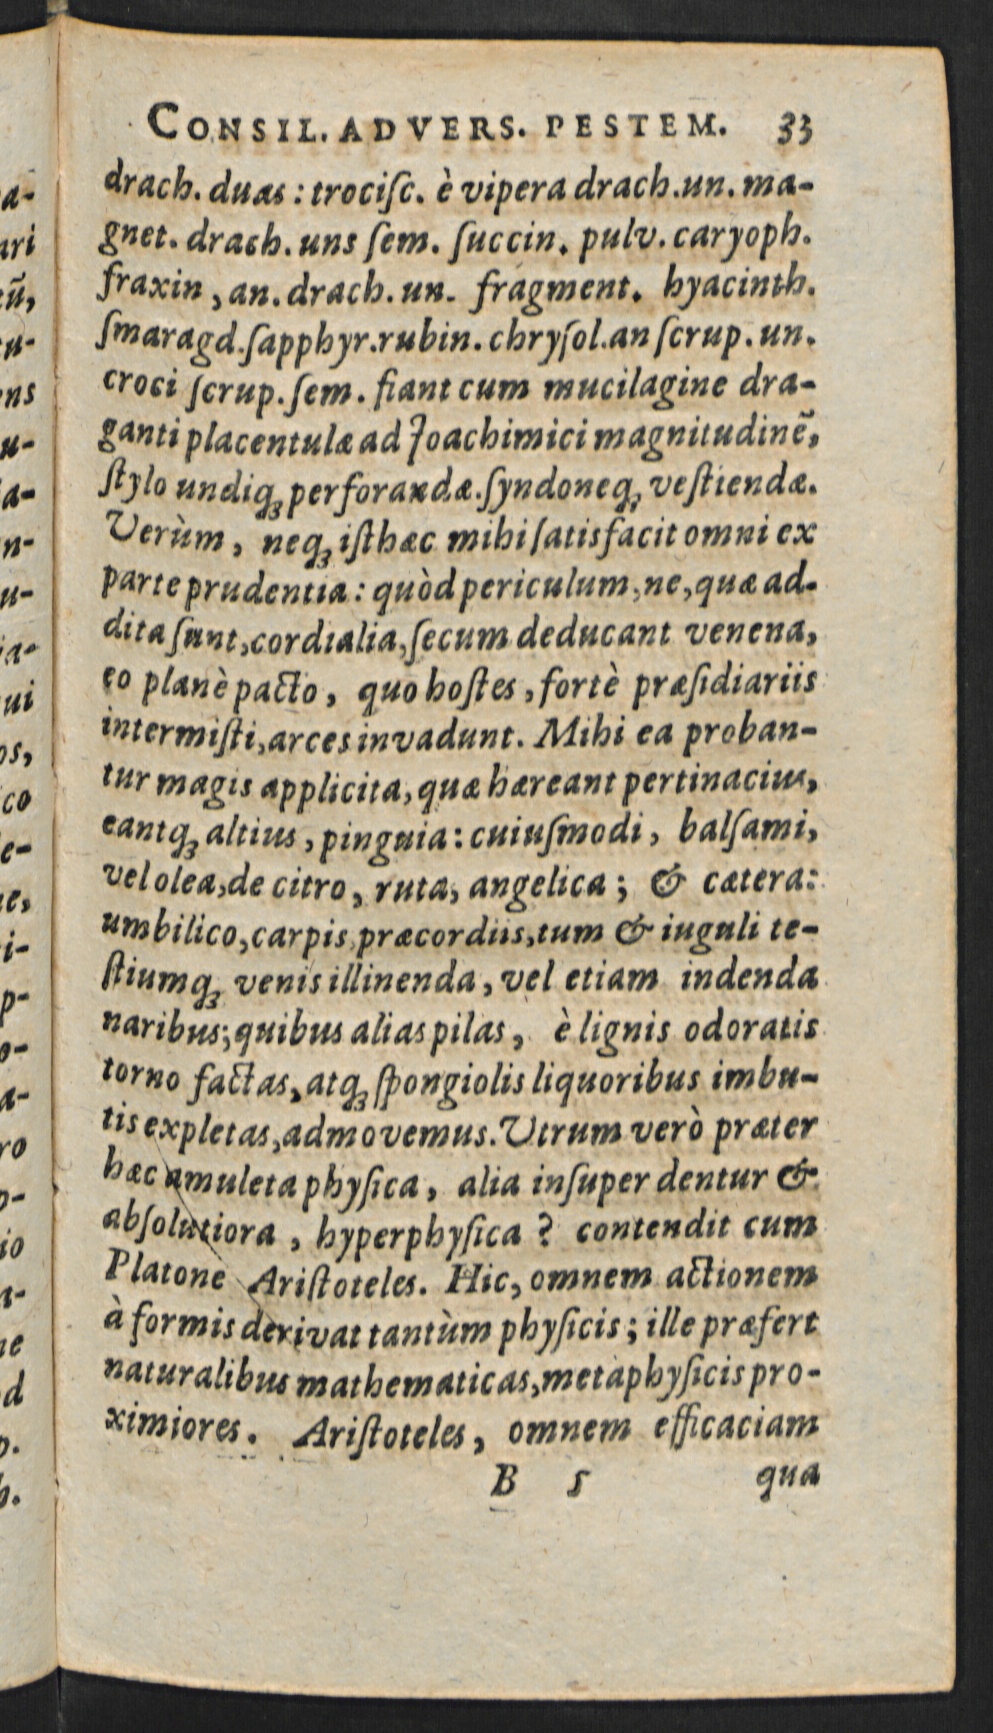 CONSIL. ADVERS. PESTEM. 33
drach. duas : trociſc. è vipera drach. un. ma-
gnet. drach. uns ſem. ſuccin. pulv. caryoph.
fraxin, an. drach. un. fragment. hyacinth.
ſmaragd. ſapphyr. rubin. chryſol. an ſcrup. un.
croci ſcrup. ſem. fiant cum mucilagine dra-
ganti placentulæ ad Joachimici magnitudinē,
ſtylo undiq; perforandæ. ſyndoneq; veſtiendæ.
Verùm, neq; iſthæc mihi ſatisfacit omni ex
parte prudentia: quòd periculum, ne, quæ ad-
dita ſunt, cordialia, ſecum deducant venena,
eo planè pacto, quo hoſtes, fortè præſidiariis
intermiſti, arces invadunt. Mihi ea proban-
tur magis applicita, quæ hæreant pertinacius,
eantq; altius, pinguia: cuiuſmodi, balſami,
vel olea, de citro, ruta, angelica; & cætera:
umbilico, carpis, præcordiis, tum & iuguli te-
ſtiumq; venis illinenda, vel etiam indenda
naribus; quibus alias pilas, è lignis odoratis
torno factas, atq; ſpongiolis liquoribus imbu-
tis expletas, admovemus. Utrum verò præter
hæc amuleta phyſica, alia inſuper dentur &
abſolutiora, hyperphyſica? contendit cum
Platone Ariſtoteles. Hic, omnem actionem
à formis derivat tantùm phyſicis; ille præfert
naturalibus mathematicas, metaphyſicis pro-
ximiores. Ariſtoteles, omnem efficaciam
B 5 qua
a-
ari
tū,
ens
u-
a-
n-
u-
ia-
ui
os,
co
e-
i-
p-
o-
a-
ro
o-
io
ne
d